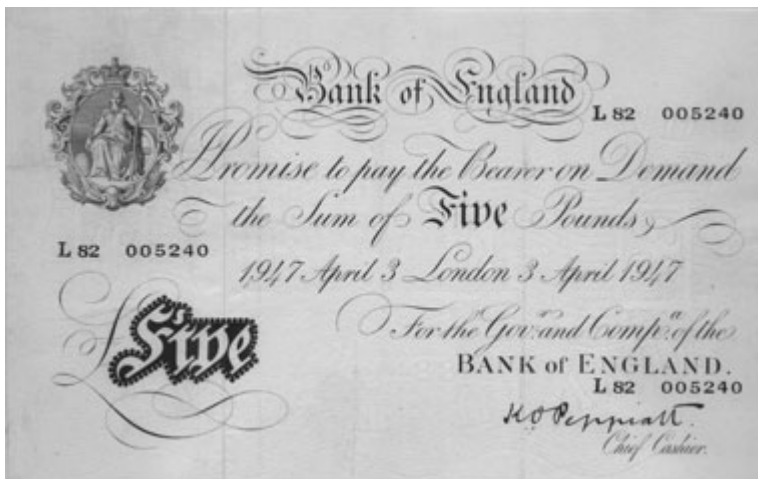 Bank of England
L 82 005240
I Promise to pay the Bearer on Demand
the Sum of Five Pounds
L 82 005240
1947 April 3 London 3 April 1947
Five
For the Gov.ʳ and Comp.ª of the
BANK of ENGLAND.
L 82 005240
K O Peppiatt.
Chief Cashier.